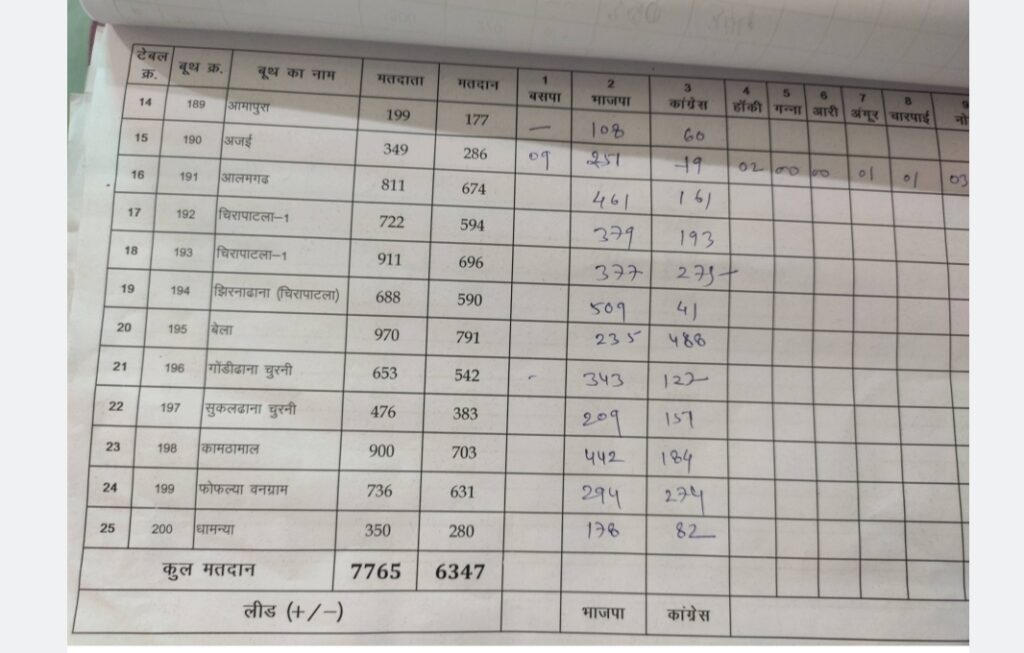 टेबल क्र. बूथ क्र. बूथ का नाम मतदाता मतदान 1 बसपा 2 भाजपा 3 कांग्रेस 4 हॉकी 5 गन्ना 6 आरी 7 अंगूर 8 चारपाई 9 नो
14 189 आमापुरा 199 177 — 108 60
15 190 अजई 349 286 09 251 19 02 00 00 01 01 03
16 191 आलमगढ 811 674 461 161
17 192 चिरापाटला-1 722 594 379 193
18 193 चिरापाटला-1 911 696 377 275
19 194 झिरनाढाना (चिरापाटला) 688 590 509 41
20 195 बेला 970 791 235 488
21 196 गोंडीढाना चुरनी 653 542 - 343 122
22 197 सुकलढाना चुरनी 476 383 209 157
23 198 कामठामाल 900 703 442 184
24 199 फोफल्या वनग्राम 736 631 294 274
25 200 धामन्या 350 280 178 82
कुल मतदान 7765 6347
लीड (+/-) भाजपा कांग्रेस